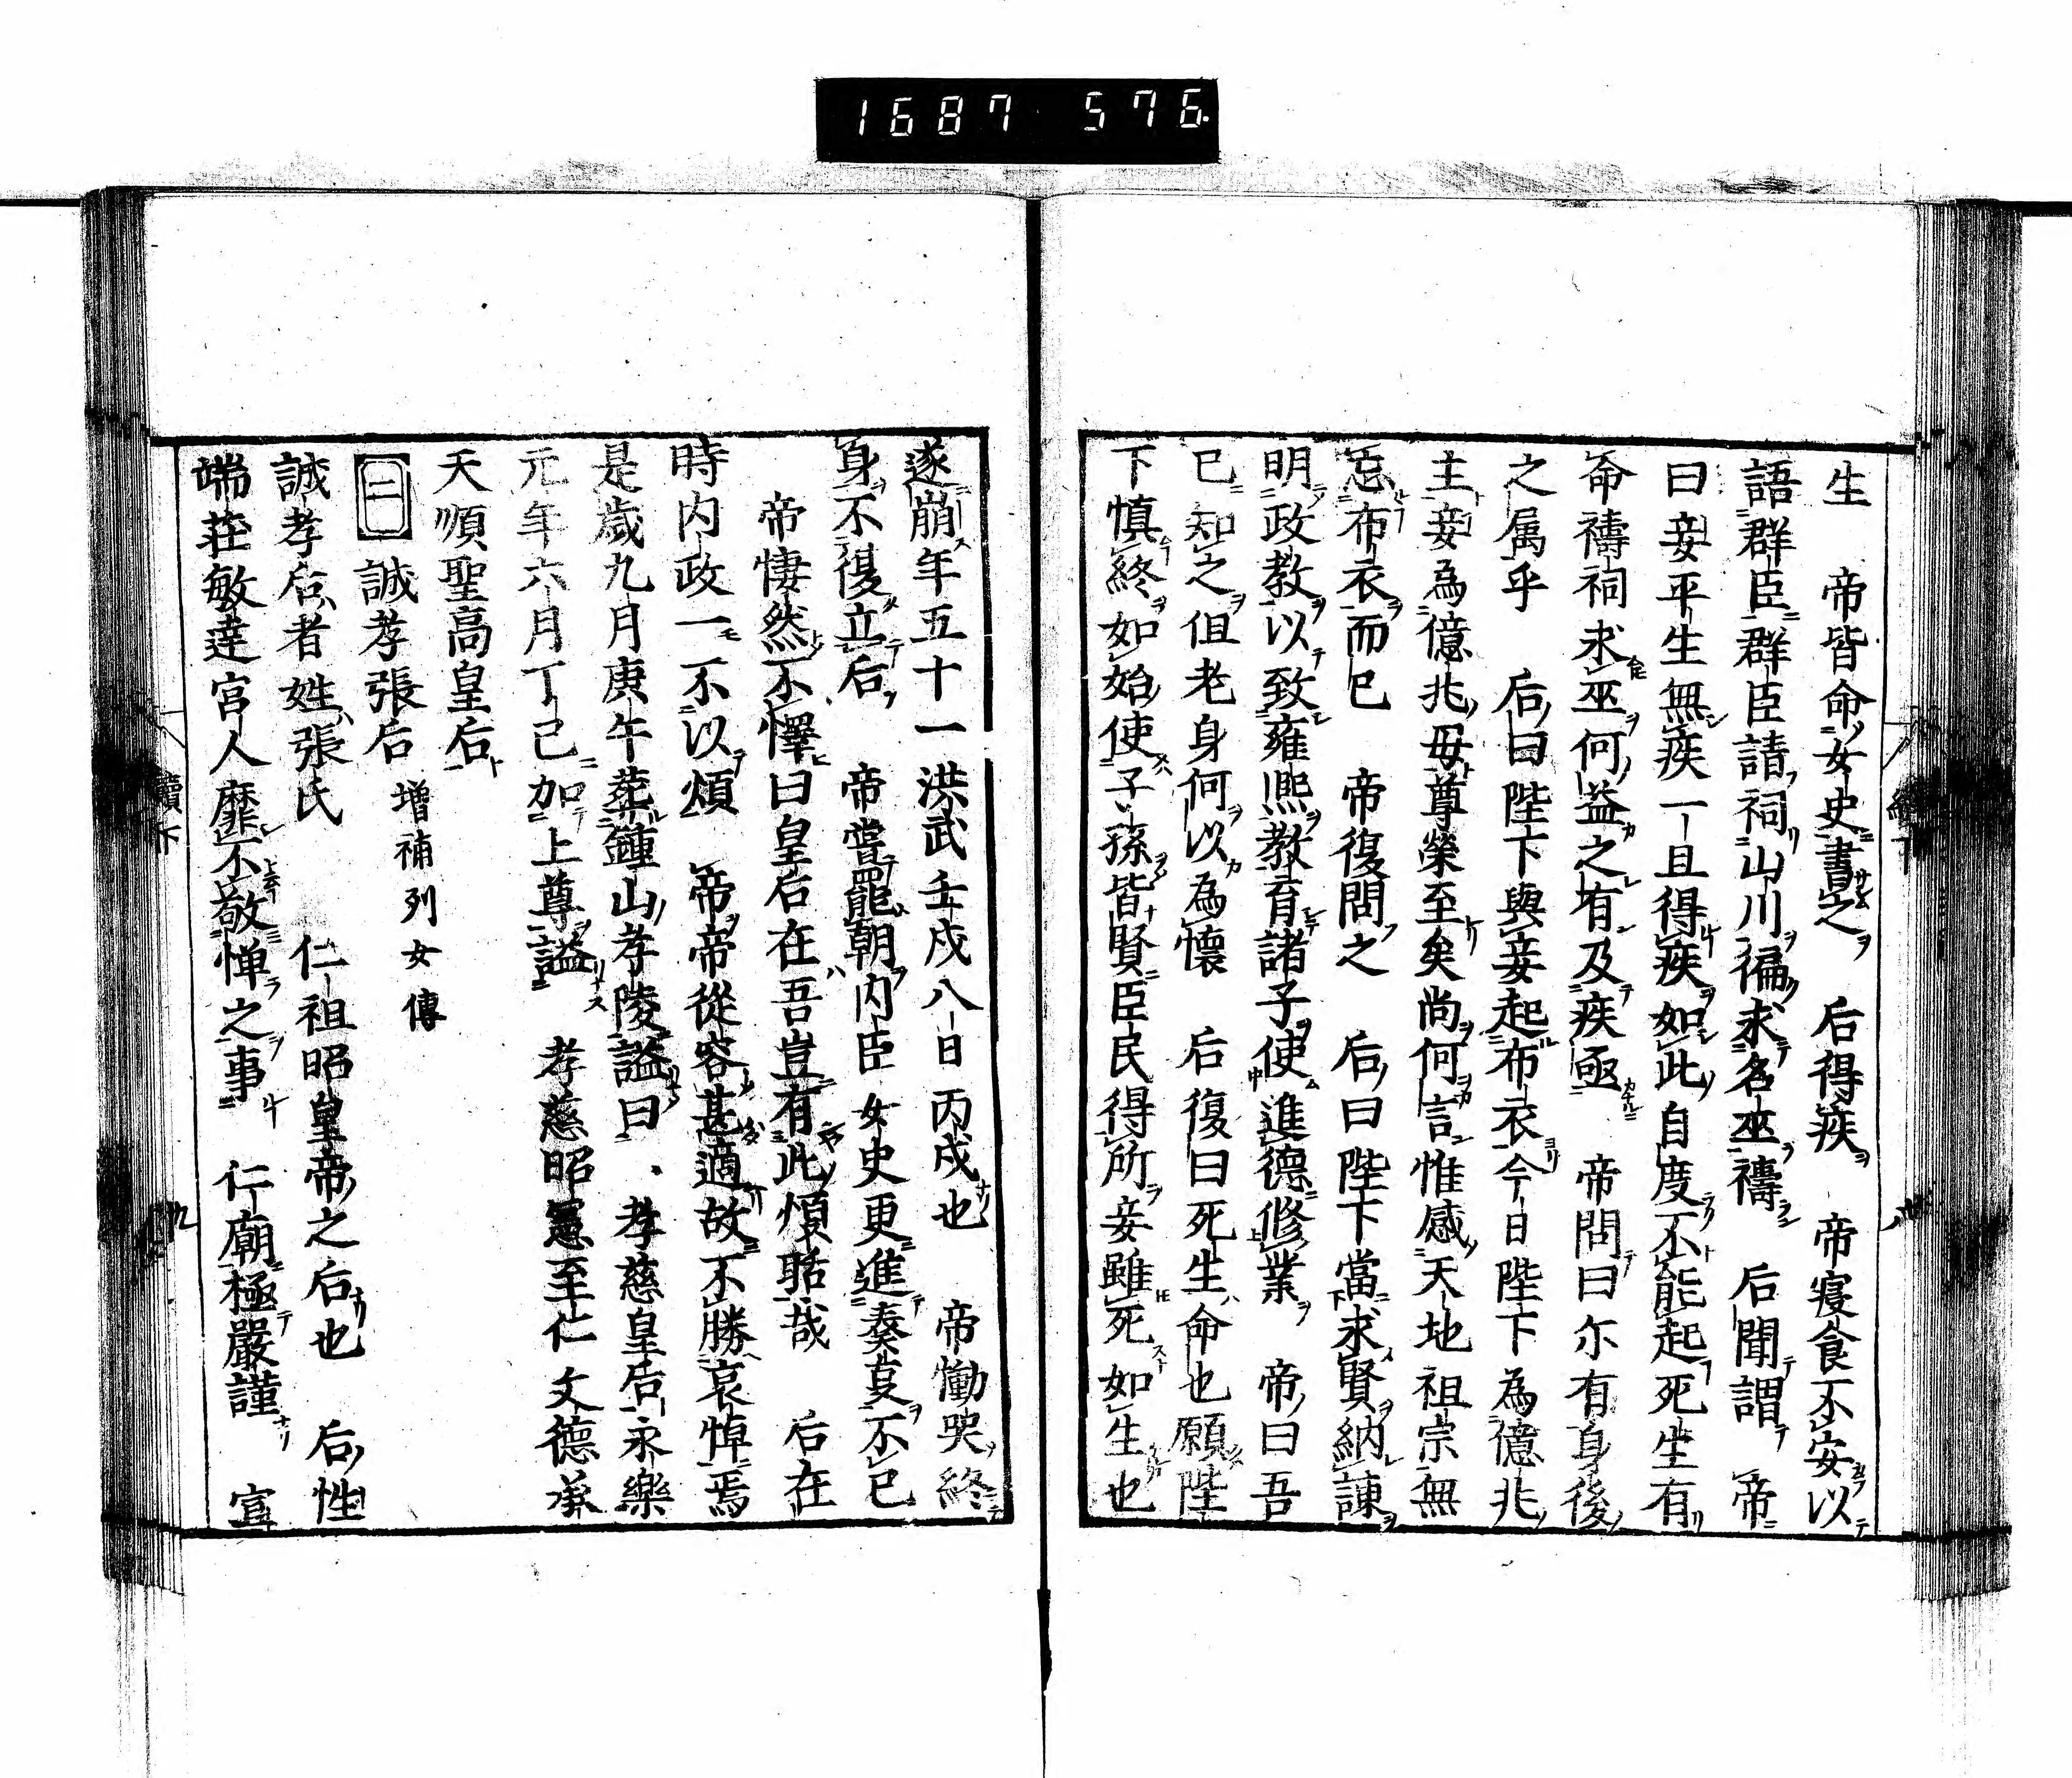 1687 576
生　帝皆命女史書之　后得疾　帝寝食不安以
語群臣群臣請祠山川徧求名巫禱　后聞謂　帝
曰妾平生無疾一旦得疾如此自度不能起死生有
命禱祠求巫何益之有及疾亟　帝問曰尓有身後
之属乎　后曰陛下與妾起布衣今日陛下為億兆
主妾為億兆母尊榮至矣尚何言惟感天地祖宗無
忘布衣而已　帝復問之　后曰陛下當求賢納諫
明政教以致雍熈教育諸子使進德修業　帝曰吾
已知之但老身何以為懷　后復曰死生命也願陛
下慎終如始使子孫皆賢臣民得所妾雖死如生也
遂崩年五十一洪武壬戌八日丙戌也　帝慟哭終
身不復立后　帝嘗罷朝内臣女史更進奏㕝不已
帝悽然不懌曰皇后在吾豈有此煩聒哉　后在
時内政一不以煩　帝帝從容甚適故不勝哀悼焉
是歳九月庚午葬鍾山孝陵謚曰　孝慈皇后永樂
元年六月丁己加上尊謚　孝慈昭憲至仁文德承
天順聖高皇后
二　誠孝張后　増補列女傳
誠孝后者姓張氏　仁祖昭皇帝之后也　后性
端莊敏達宮人靡不敬憚之事　仁廟極嚴謹　宣
續下　九